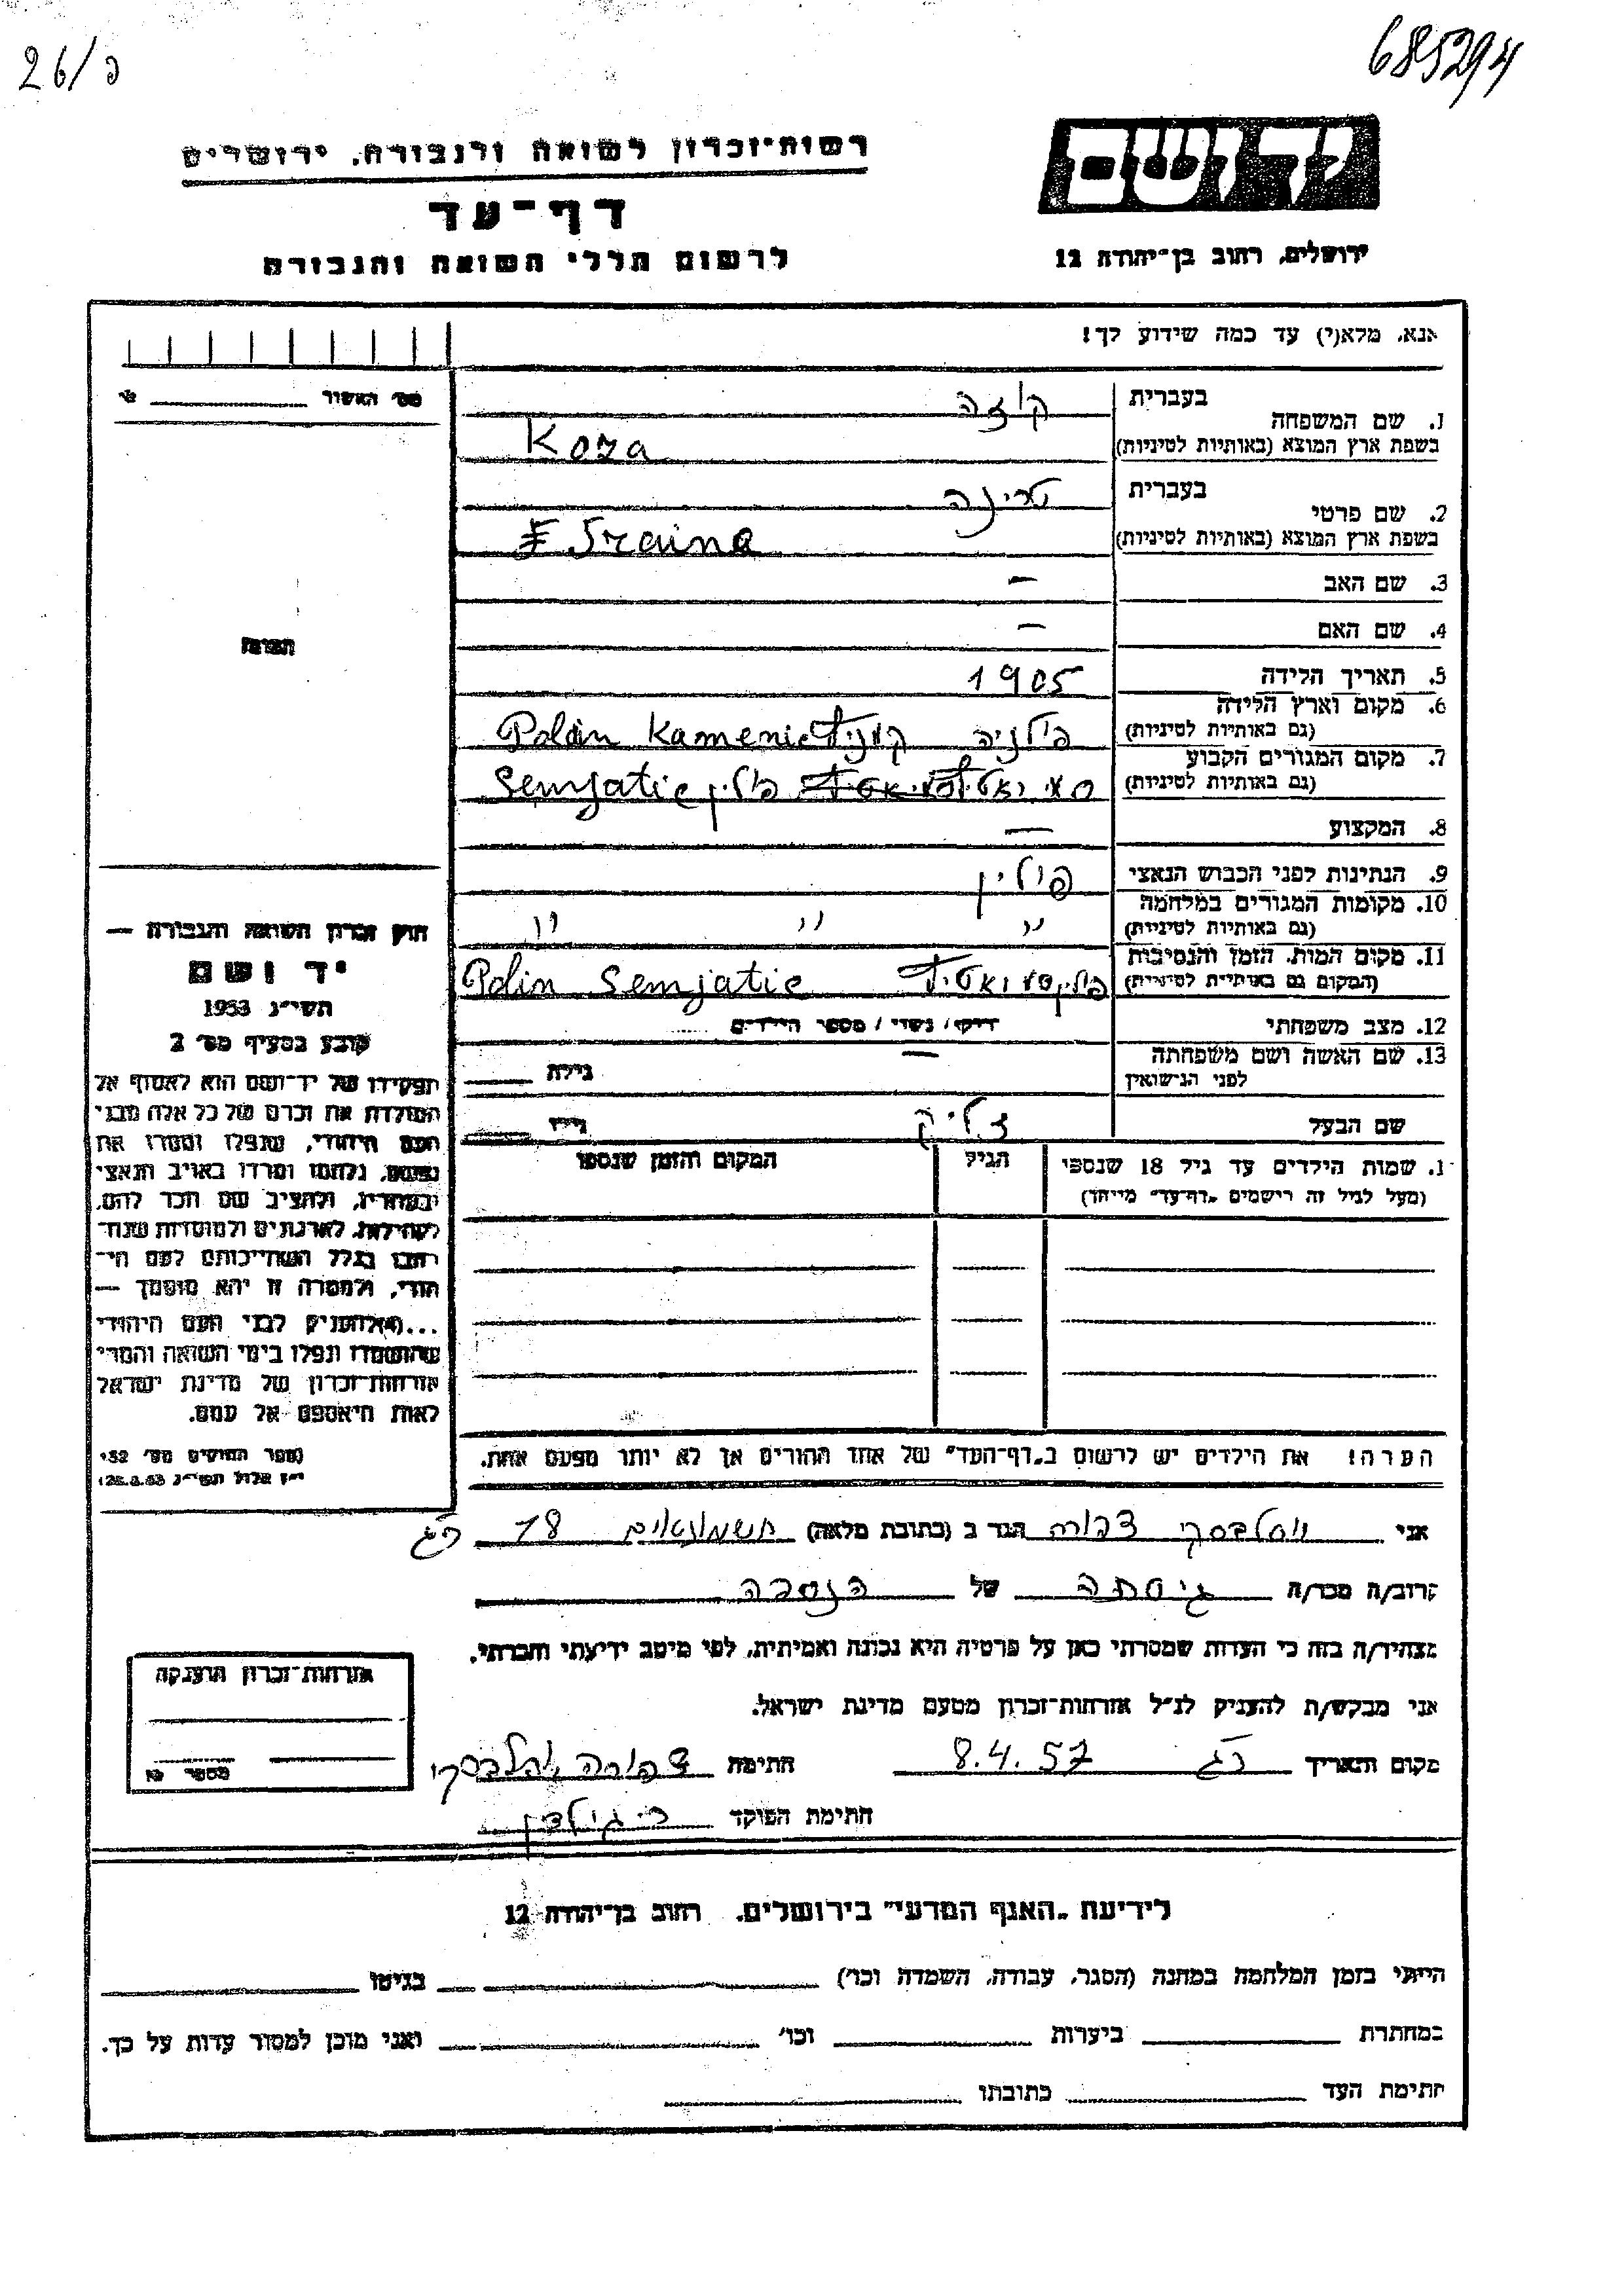 26/פ
685294
רשות-זכרון לשואה ולגבורה, ירושלים
דף-עד
לרשום חללי השואה והגבורה
יד ושם
ירושלים, רחוב בן-יהודה 12
אנא, מלא(י) עד כמה שידוע לך!
מס' האשור
1. שם המשפחה
בעברית קוזה
בשפת ארץ המוצא (באותיות לטיניות) Koza
2. שם פרטי
בעברית טרינה
בשפת ארץ המוצא (באותיות לטיניות) Fraina
3. שם האב —
4. שם האם —
5. תאריך הלידה 1905
6. מקום וארץ הלידה
(גם באותיות לטיניות) פולניה Polin Kamenic
7. מקום המגורים הקבוע
(גם באותיות לטיניות) פולין Semjatic
8. המקצוע —
9. הנתינות לפני הכבוש הנאצי פולין
10. מקומות המגורים במלחמה
(גם באותיות לטיניות) " " "
11. מקום המות, הזמן והנסיבות
(המקום גם באותיות לטיניות) Polin Semjatic
12. מצב משפחתי רווק / נשוי / מספר הילדים
13. שם האשה ושם משפחתה
לפני הנישואין — גילה
שם הבעל זליק גילו
שמות הילדים עד גיל 18 שנספו
(מעל לגיל זה רישמים "דף-עד" מייוחד)
הגיל
המקום והזמן שנספו
הערה! את הילדים יש לרשום ב"דף-העד" של אחד ההורים אך לא יותר מפעם אחת.
התמונה
חוק זכרון השואה והגבורה —
יד ושם
תשי"ג 1953
קובע בסעיף מס' 2
תפקידו של יד-ושם הוא לאסוף אל
המולדת את זכרם של כל אלה מבני
העם היהודי, שנפלו ומסרו את
נפשם, נלחמו ומרדו באויב הנאצי
ובעוזריו, ולהציב שם וזכר להם,
לקהילות, לארגונים ולמוסדות שנח-
רבו בגלל השתייכותם לעם הי-
הודי, ולמטרה זו יהא מוסמך —
...(4) להעניק לבני העם היהודי
שהושמדו ונפלו בימי השואה והמרי
אזרחות-זכרון של מדינת ישראל
לאות היאספם אל עמם.
(ספר החוקים מס' 132
י"ז אלול תשי"ג 28.8.53)
אני צפורה הגר ב (כתובת מלאה) חשמונאים 18 רג
קרוב/ה מכר/ה גיסתה של הנספה
מצהיר/ה בזה כי העדות שמסרתי כאן על פרטיה היא נכונה ואמיתית, לפי מיטב ידיעתי והכרתי.
אני מבקש/ת להעניק לנ"ל אזרחות-זכרון מטעם מדינת ישראל.
מקום ותאריך רג 8.4.57 חתימה צפורה
חתימת הפוקד
אזרחות-זכרון הוענקה
מספר
לידיעת "האגף המדעי" בירושלים, רחוב בן-יהודה 12
הייתי בזמן המלחמה במחנה (הסגר, עבודה, השמדה וכו') בגיטו
במחתרת ביערות וכו' ואני מוכן למסור עדות על כך.
חתימת העד כתובתו